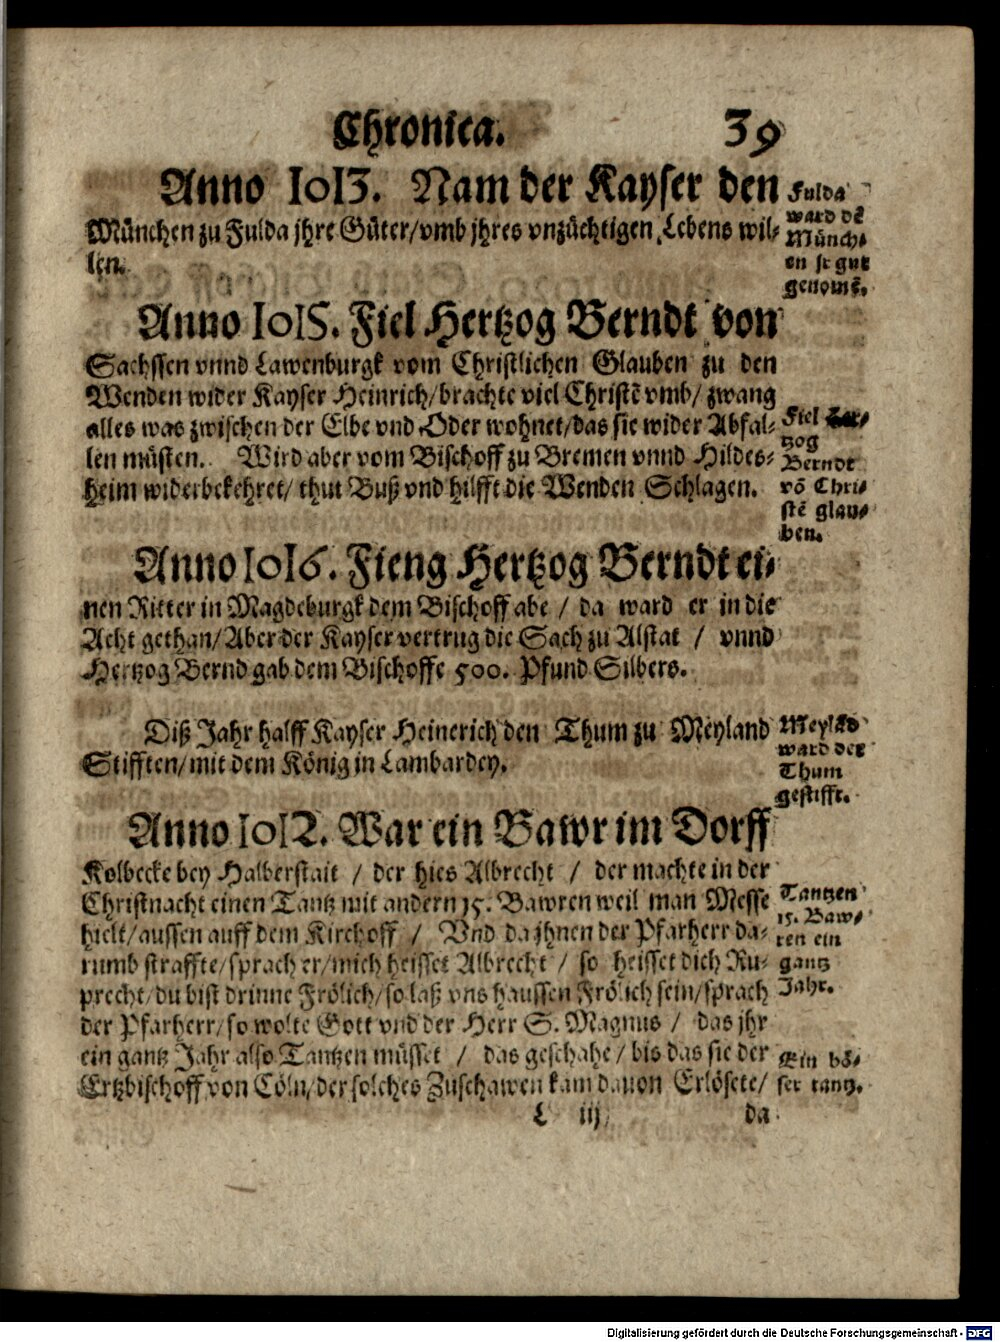 Chronica. 39
Anno 1013. Nam der Kayser den
München zu Fulda jhre Güter/vmb jhres vnzüchtigen Lebens wil-
len.
Fulda
ward dē
Münch-
en jr gut
genomē.
Anno 1015. Fiel Hertzog Berndt von
Sachssen vnnd Lawenburgk vom Christlichen Glauben zu den
Wenden wider Kayser Heinrich/brachte viel Christē vmb/ zwang
alles was zwischen der Elbe vnd Oder wohnet/das sie wider Abfal-
len müsten. Wird aber vom Bischoff zu Bremen vnnd Hildes-
heim widerbekehret/ thut Buß vnd hilfft die Wenden Schlagen.
Fiel Her-
tzog
Berndt
vō Chri-
stē glau-
ben.
Anno 1016. Fieng Hertzog Berndt ei-
nen Ritter in Magdeburgk dem Bischoff abe / da ward er in die
Acht gethan/Aber der Kayser vertrug die Sach zu Alstat / vnnd
Hertzog Bernd gab dem Bischoffe 500. Pfund Silbers.
Diß Jahr halff Kayser Heinerich den Thum zu Meyland
Stifften/mit dem König in Lambardey.
Meylād
ward der
Thum
gestifft.
Anno 1012. War ein Bawr im Dorff
Kolbecke bey Halberstait / der hies Albrecht / der machte in der
Christnacht einen Tantz mit andern 15. Bawren weil man Messe
hielt/aussen auff dem Kirchoff / Vnd da jhnen der Pfarherr da-
rumb straffte/sprach er/mich heisset Albrecht / so heisset dich Ru-
precht/du bist drinne Frölich/so laß vns haussen Frölich sein/sprach
der Pfarherr/so wolte Gott vnd der Herr S. Magnus / das jhr
ein gantz Jahr also Tantzen müsset / das geschahe/bis das sie der
Ertzbischoff von Cöln/der solches Zuschawen kam dauon Erlösete/
Tantzen
15. Baw-
ren ein
gantz
Jahr.
Ein bö-
ser tantz.
L iij da
Digitalisierung gefördert durch die Deutsche Forschungsgemeinschaft - DFG